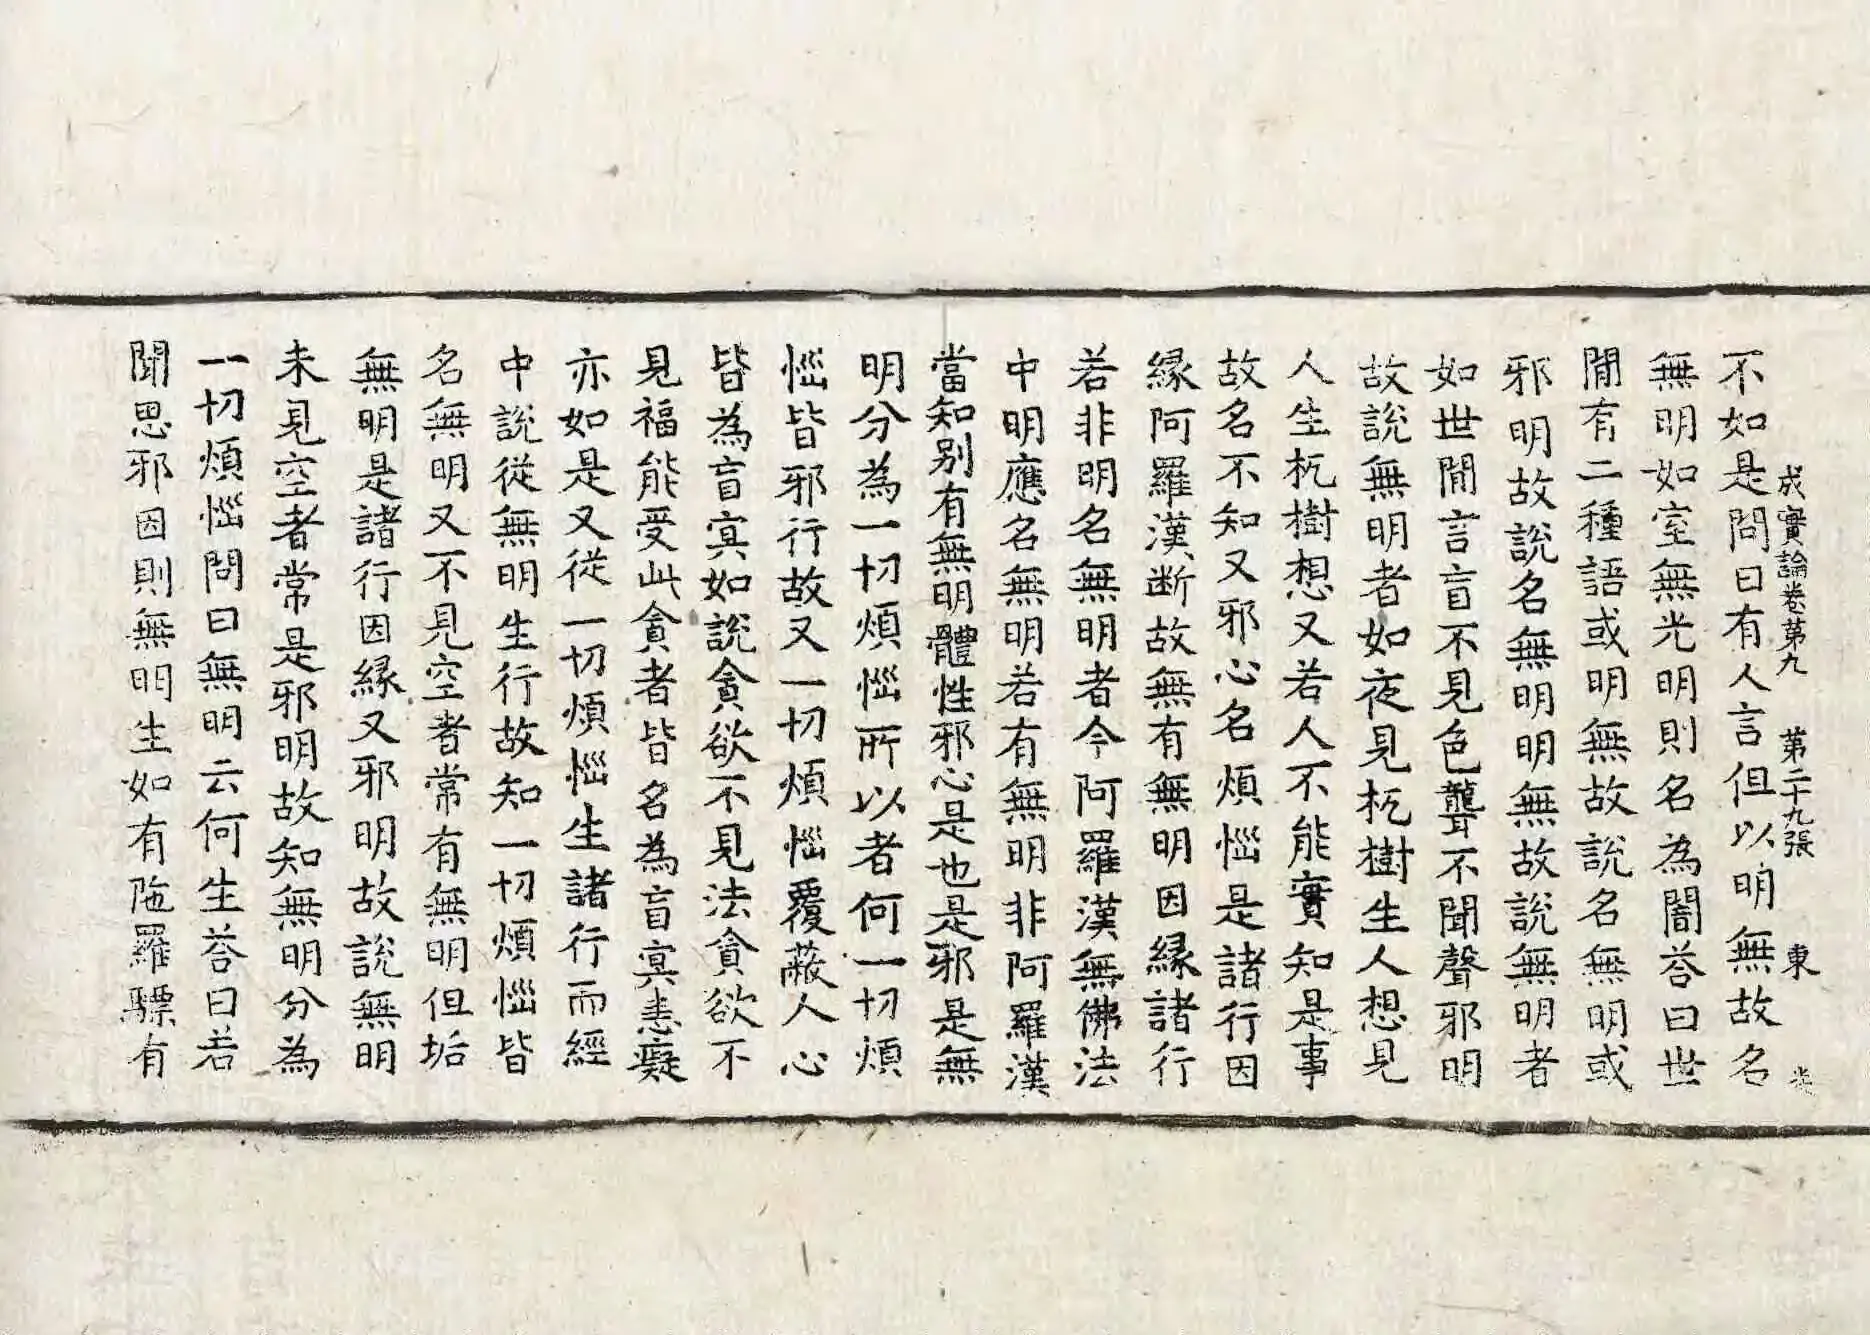 成實論卷第九 第二十九張 東
不如是問曰有人言但以明無故名
無明如室無光明則名為闇荅曰世
閒有二種語或明無故說名無明或
邪明故說名無明明無故說無明者
如世閒言盲不見色聾不聞聲邪明
故說無明者如夜見杌樹生人想見
人生杌樹想又若人不能實知是事
故名不知又邪心名煩惱是諸行因
緣阿羅漢断故無有無明因緣諸行
若非明名無明者今阿羅漢無佛法
中明應名無明若有無明非阿羅漢
當知別有無明體性邪心是也是邪是無
明分為一切煩惱所以者何一切煩
惱皆邪行故又一切煩惱覆蔽人心
皆為盲㝠如說貪欲不見法貪欲不
見福能受此貪者皆名為盲㝠恚癡
亦如是又從一切煩惱生諸行而經
中說從無明生行故知一切煩惱皆
名無明又不見空者常有無明但垢
無明是諸行因緣又邪明故說無明
未見空者常是邪明故知無明分為
一切煩惱問曰無明云何生荅曰若
聞思邪因則無明生如有陁羅驃有